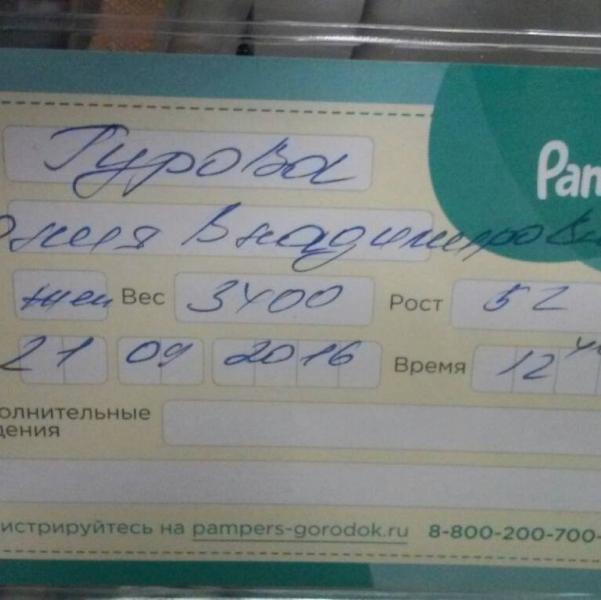 Гурова
Pam
Юлия Владимировна
жен Вес 3400 Рост 52
21 09 2016 Время 12
олнительные
дения
истрируйтесь на pampers-gorodok.ru 8-800-200-700-